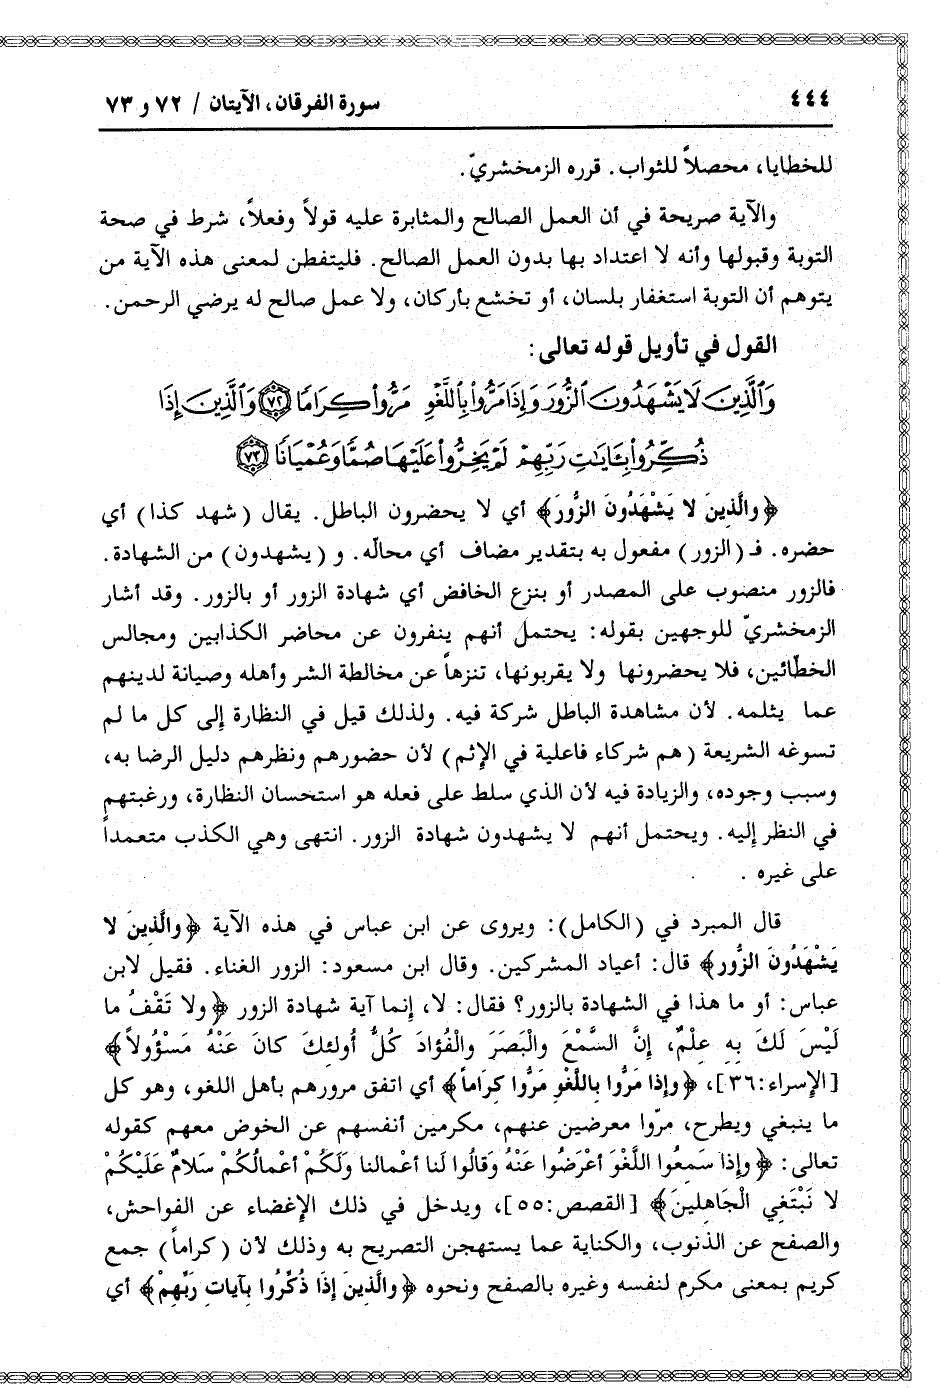 ٤٤٤
سورة الفرقان، الآيتان / ٧٢ و ٧٣
للخطايا، محصلاً للثواب. قرره الزمخشريّ.
والآية صريحة في أن العمل الصالح والمثابرة عليه قولاً وفعلاً، شرط في صحة
التوبة وقبولها وأنه لا اعتداد بها بدون العمل الصالح. فليتفطن لمعنى هذه الآية من
يتوهم أن التوبة استغفار بلسان، أو تخشع بأركان، ولا عمل صالح له يرضي الرحمن.
القول في تأويل قوله تعالى:
وَٱلَّذِينَ لَا يَشْهَدُونَ ٱلزُّورَ وَإِذَا مَرُّوا۟ بِٱللَّغْوِ مَرُّوا۟ كِرَامًا ۝٧٢ وَٱلَّذِينَ إِذَا
ذُكِّرُوا۟ بِـَٔايَـٰتِ رَبِّهِمْ لَمْ يَخِرُّوا۟ عَلَيْهَا صُمًّا وَعُمْيَانًا ۝٧٣
﴿والَّذِينَ لا يَشْهَدُونَ الزُّورَ﴾ أي لا يحضرون الباطل. يقال (شهد كذا) أي
حضره. فـ (الزور) مفعول به بتقدير مضاف أي محالّه. و (يشهدون) من الشهادة.
فالزور منصوب على المصدر أو بنزع الخافض أي شهادة الزور أو بالزور. وقد أشار
الزمخشريّ للوجهين بقوله: يحتمل أنهم ينفرون عن محاضر الكذابين ومجالس
الخطّائين، فلا يحضرونها ولا يقربونها، تنزهاً عن مخالطة الشر وأهله وصيانة لدينهم
عما يثلمه. لأن مشاهدة الباطل شركة فيه. ولذلك قيل في النظارة إلى كل ما لم
تسوغه الشريعة (هم شركاء فاعلية في الإثم) لأن حضورهم ونظرهم دليل الرضا به،
وسبب وجوده، والزيادة فيه لأن الذي سلط على فعله هو استحسان النظارة، ورغبتهم
في النظر إليه. ويحتمل أنهم لا يشهدون شهادة الزور. انتهى وهي الكذب متعمداً
على غيره .
قال المبرد في (الكامل): ويروى عن ابن عباس في هذه الآية ﴿والَّذِينَ لا
يَشْهَدُونَ الزُّور﴾ قال: أعياد المشركين. وقال ابن مسعود: الزور الغناء. فقيل لابن
عباس: أو ما هذا في الشهادة بالزور؟ فقال: لا، إنما آية شهادة الزور ﴿ولا تَقْفُ ما
لَيْسَ لَكَ بِهِ عِلْمٌ، إِنَّ السَّمْعَ والْبَصَرَ والْفُؤادَ كُلُّ أُولئِكَ كانَ عَنْهُ مَسْؤُولاً﴾
[الإسراء:٣٦]، ﴿وإِذا مَرُّوا بِاللَّغْوِ مَرُّوا كِرَاماً﴾ أي اتفق مرورهم بأهل اللغو، وهو كل
ما ينبغي ويطرح، مرّوا معرضين عنهم، مكرمين أنفسهم عن الخوض معهم كقوله
تعالى: ﴿وإِذا سَمِعُوا اللَّغْوَ أعْرَضُوا عَنْهُ وَقالُوا لَنا أعْمالُنا ولَكُمْ أعْمالُكُمْ سَلامٌ عَلَيْكُمْ
لا نَبْتَغِي الْجَاهِلِينَ﴾ [القصص:٥٥]، ويدخل في ذلك الإغضاء عن الفواحش،
والصفح عن الذنوب، والكناية عما يستهجن التصريح به وذلك لأن (كراماً) جمع
كريم بمعنى مكرم لنفسه وغيره بالصفح ونحوه ﴿والَّذِينَ إِذَا ذُكِّرُوا بِآياتِ رَبِّهِمْ﴾ أي